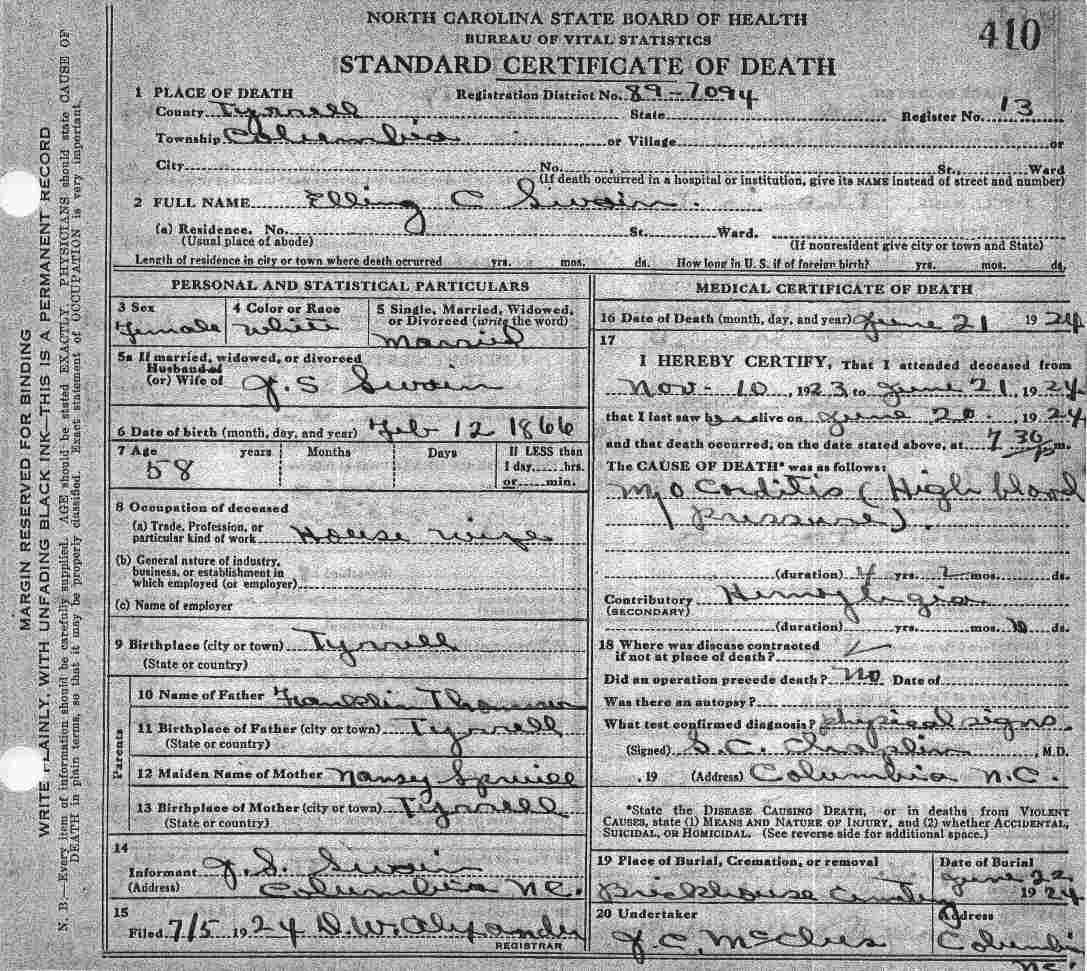 NORTH CAROLINA STATE BOARD OF HEALTH
BUREAU OF VITAL STATISTICS
410
STANDARD CERTIFICATE OF DEATH
1 PLACE OF DEATH Registration District No. 89-7094
County Tyrrell State Register No. 13
Township Columbia or Village or
City No. St., Ward
(If death occurred in a hospital or institution, give its NAME instead of street and number)
2 FULL NAME Elling C Swain.
(a) Residence. No. St. Ward.
(Usual place of abode) (If nonresident give city or town and State)
Length of residence in city or town where death occurred yrs. mos. ds. How long in U. S. if of foreign birth? yrs. mos. ds.
PERSONAL AND STATISTICAL PARTICULARS
3 Sex 4 Color or Race 5 Single, Married, Widowed,
or Divorced (write the word)
Female White Married
5a If married, widowed, or divorced
Husband of
(or) Wife of J. S Swain
6 Date of birth (month, day, and year) Feb 12 1866
7 Age years Months Days If LESS than
58 1 day......hrs.
or......min.
8 Occupation of deceased
(a) Trade, Profession, or
particular kind of work House wife
(b) General nature of industry,
business, or establishment in
which employed (or employer)
(c) Name of employer
9 Birthplace (city or town) Tyrrell
(State or country)
Parents
10 Name of Father Franklin
11 Birthplace of Father (city or town) Tyrrell
(State or country)
12 Maiden Name of Mother Nansy Spruill
13 Birthplace of Mother (city or town) Tyrrell
(State or country)
14
Informant J. S. Swain
(Address) Columbia NC.
15
Filed 7/5 1924 D. W. Alexander
REGISTRAR
MEDICAL CERTIFICATE OF DEATH
16 Date of Death (month, day, and year) June 21 1924
17
I HEREBY CERTIFY, That I attended deceased from
Nov - 10, 1923 to June 21, 1924
that I last saw her alive on June 20, 1924
and that death occurred, on the date stated above, at 7 30 P m.
The CAUSE OF DEATH* was as follows:
Myo Corditis (High blood
pressure).
(duration) 4 yrs. 2 mos. ds.
Contributory
(SECONDARY)
(duration) yrs. mos. 10 ds.
18 Where was disease contracted
if not at place of death?
Did an operation precede death? No Date of
Was there an autopsy?
What test confirmed diagnosis? physical signs
(Signed) S. C. Chaplin, M.D.
, 19 (Address) Columbia N.C.
*State the DISEASE CAUSING DEATH, or in deaths from VIOLENT
CAUSES, state (1) MEANS AND NATURE OF INJURY, and (2) whether ACCIDENTAL,
SUICIDAL, OR HOMICIDAL. (See reverse side for additional space.)
19 Place of Burial, Cremation, or removal Date of Burial
Brickhouse Cemetery June 22 1924
20 Undertaker Address
J. C. McClees Columbia
NC.
MARGIN RESERVED FOR BINDING
WRITE PLAINLY, WITH UNFADING BLACK INK—THIS IS A PERMANENT RECORD
N. B.—Every item of information should be carefully supplied. AGE should be stated EXACTLY. PHYSICIANS should state CAUSE OF
DEATH in plain terms, so that it may be properly classified. Exact statement of OCCUPATION is very important.